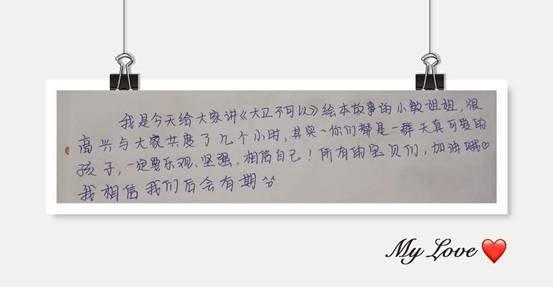 我是今天给大家讲《大卫不可以》绘本故事的小敏姐姐,很
高兴与大家共度了几个小时,其实~你们都是一群天真可爱的
孩子,一定要乐观、坚强,相信自己!所有的宝贝们,加油哦♡
我相信我们后会有期^^
My Love ❤️